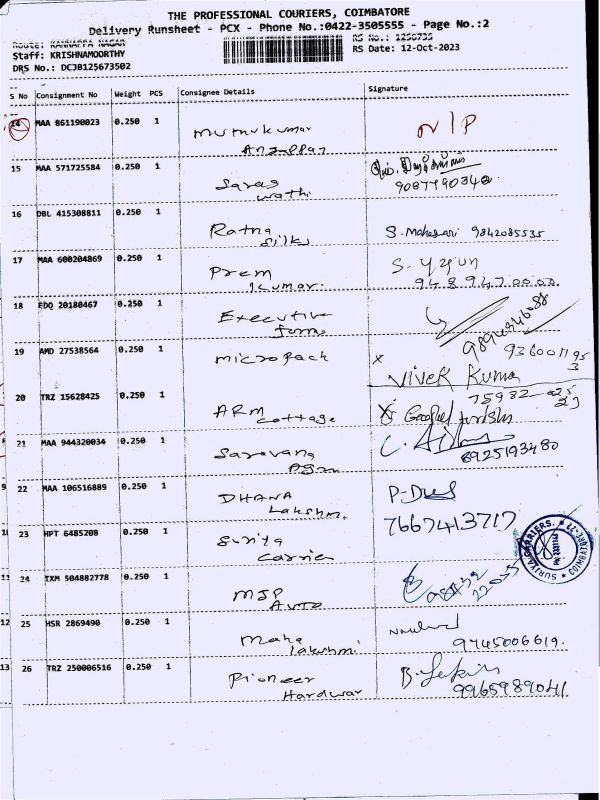 THE PROFESSIONAL COURIERS, COIMBATORE
Delivery Runsheet - PCX - Phone No.:0422-3505555 - Page No.:2
Route: KANNAPPA NAGAR
Staff: KRISHNAMOORTHY RS Date: 12-Oct-2023
DRS No.: DCJB125673502
S No Consignment No Weight PCS Consignee Details Signature
14 MAA 861190023 0.250 1 Muthukumar N/P
15 MAA 571725584 0.250 1 Saras
wathi 9087790340
16 DBL 415308811 0.250 1 Ratna
Silks S. Maheswari 9842085535
17 MAA 600204869 0.250 1 Prem
kumar. S.
9489470000
18 EDQ 20180467 0.250 1 Executive
19 AMD 27538564 0.250 1 micropack x 9360011953
Vivek Kuma
20 TRZ 15628425 0.250 1 ARM
cottage
21 MAA 944320034 0.250 1 Saravana
8925193480
22 MAA 106516889 0.250 1 DHANA
Lakshmi. 7667413717
23 HPT 6485208 0.250 1 Surya
Carrier
SURYA CARRIERS, COIMBATORE
24 IXM 504882778 0.250 1 MJP
Auto
25 HSR 2869490 0.250 1 Maha
lakshmi 9745006619.
26 TRZ 250006516 0.250 1 Pioneer
Hardwar 9965989041